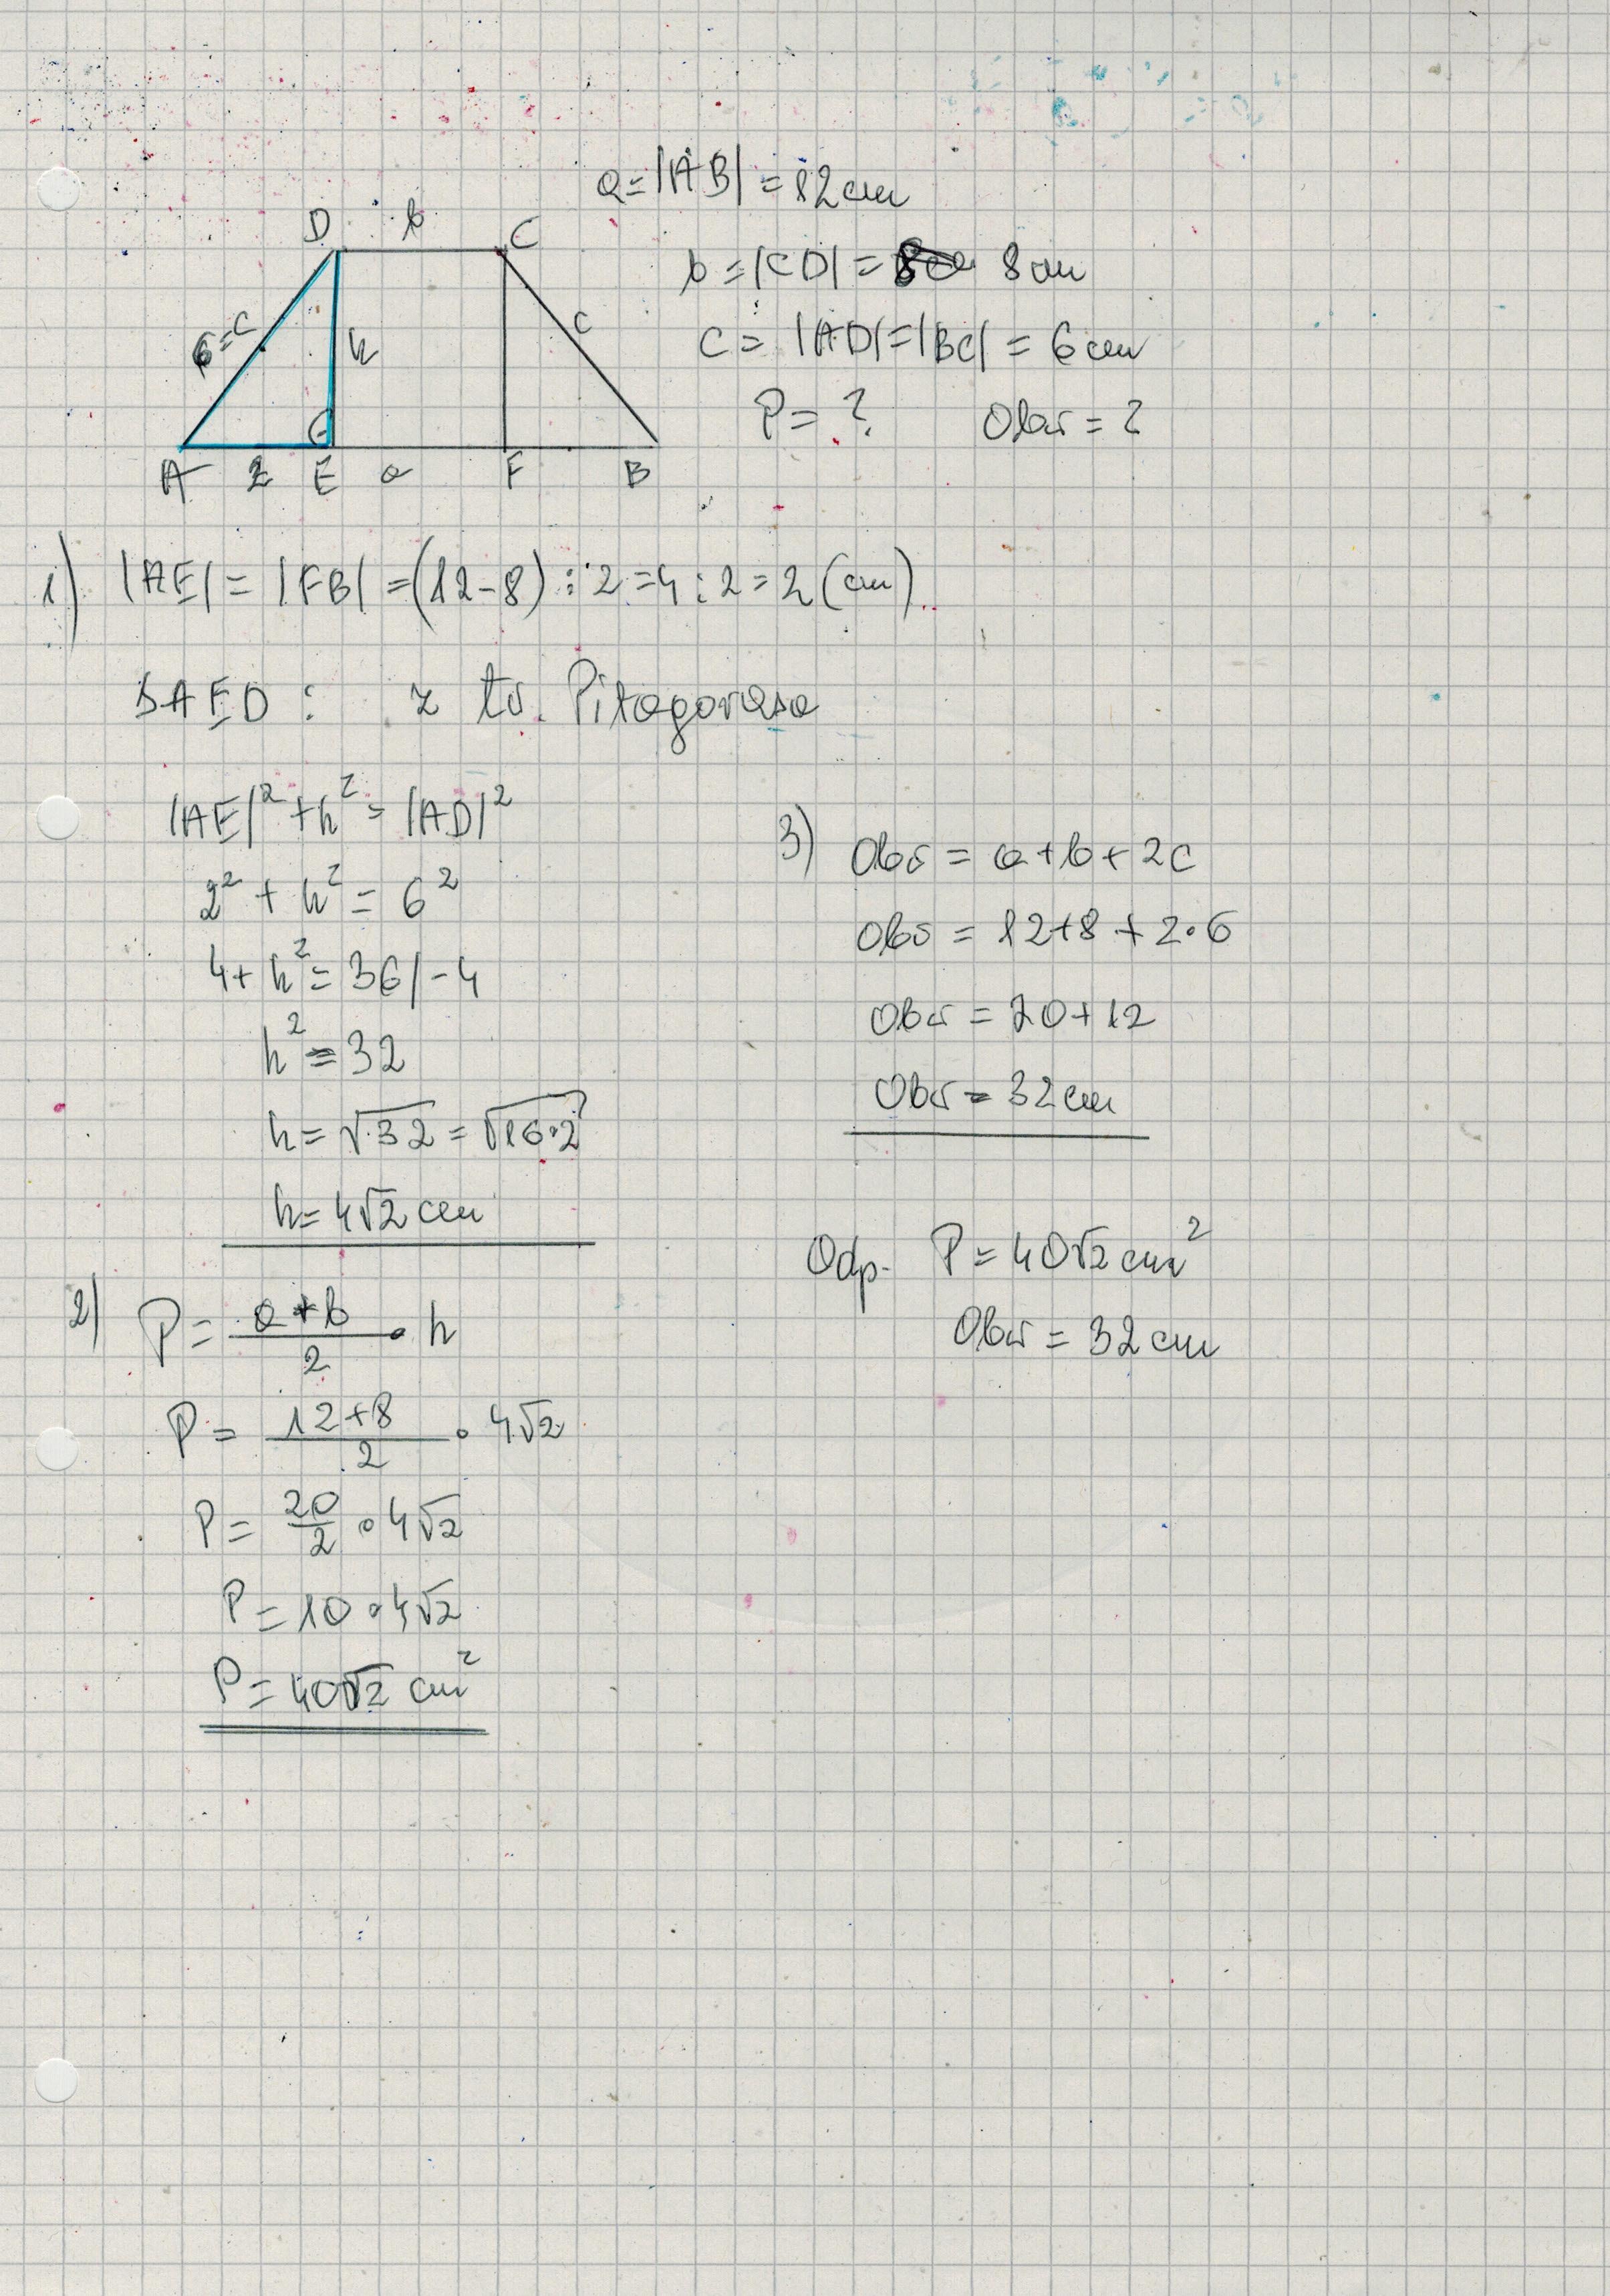 a=|AB| = 12cm
D b C
b=|CD|= 8cm
6=c h c
c= |AD|=|BC| = 6cm
P= ? Obw = ?
A 2 E a F B
1) |AE|= |FB| =(12-8) : 2 =4 : 2 = 2 (cm)
ΔAED : z tw. Pitagorasa
|AE|²+h²= |AD|²
2² + h² = 6²
4+ h²= 36/-4
h² = 32
h= √32 = √16·2
h= 4√2 cm
2) P= (a+b)/2 · h
P= (12+8)/2 · 4√2
P= 20/2 · 4√2
P=10·4√2
P=40√2 cm²
3) Obw = a+b+2c
Obw = 12+8+2·6
Obw = 20+12
Obw = 32cm
Odp. P= 40√2 cm²
Obw = 32cm